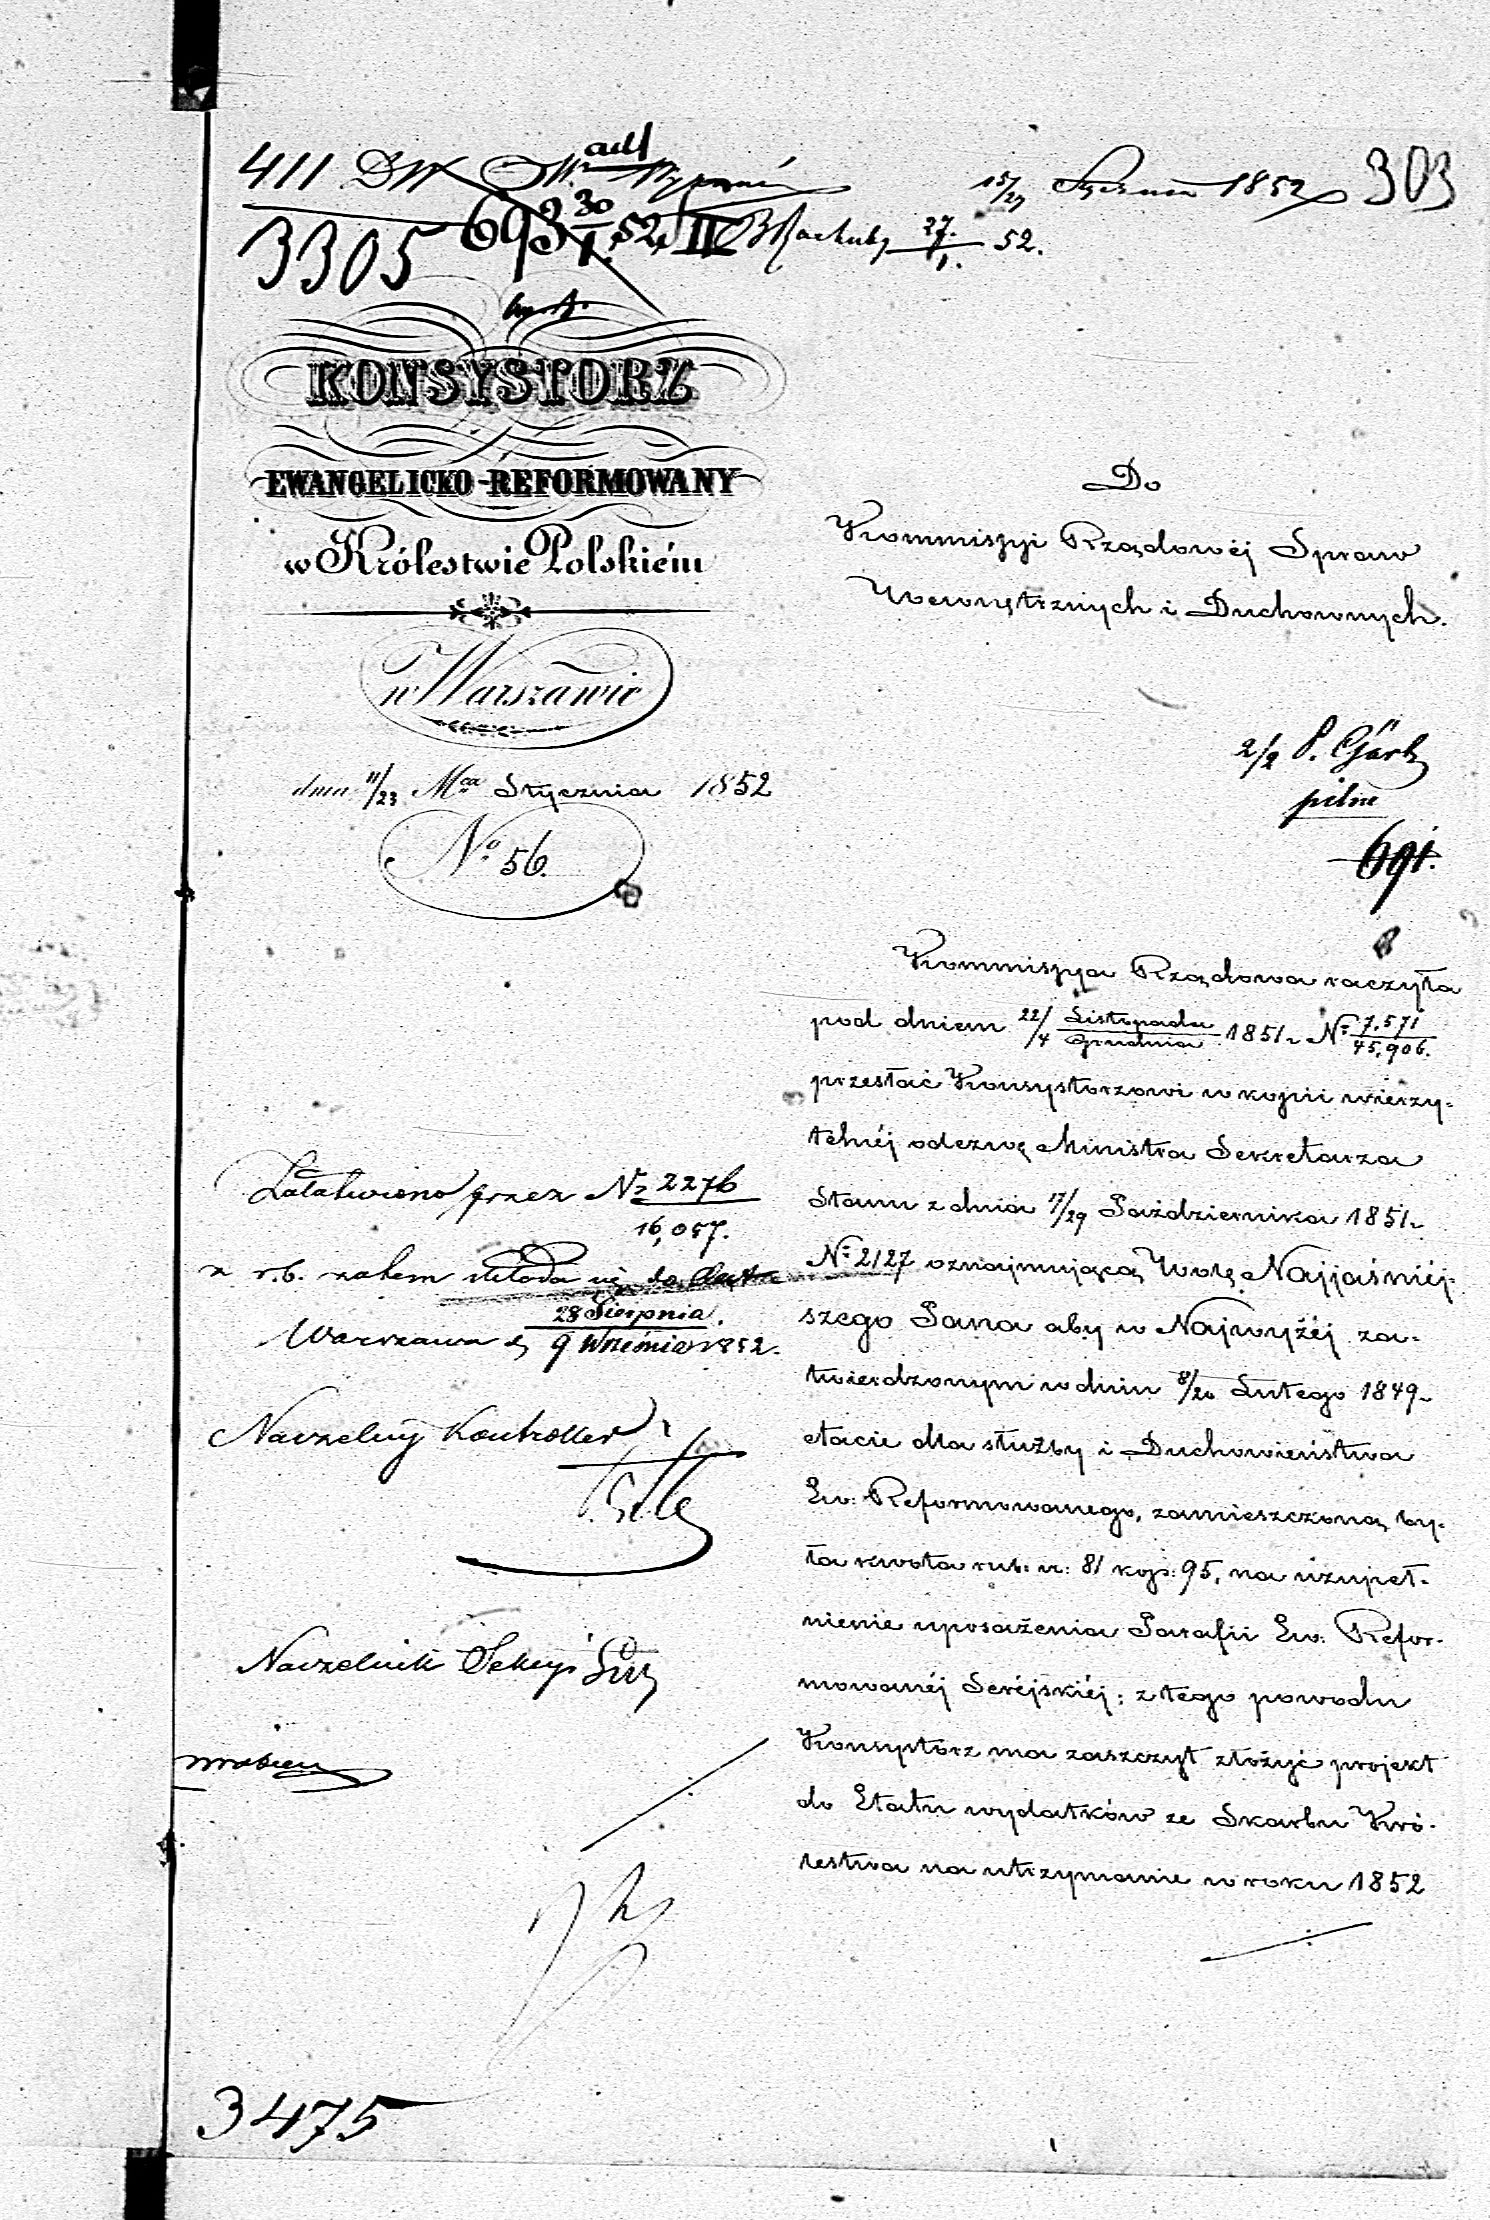 411 DW
adf
15/27 Stycznia 1852 303
3305 693 30/1 52 II 27/1 52.
KONSYSTORZ
EWANGELICKO-REFORMOWANY
w Królestwie Polskiém
w Warszawie
dnia 11/23 Mca Stycznia 1852
No 56.
Do
Kommissyi Rządowéj Spraw
Wewnętrznych i Duchownych.
2/2 P.
pilne
691.
Kommissya Rządowa raczyła
pod dniem 22/4 Listopada/Grudnia 1851 r. N: 7,571/45,906.
przesłać Konsystorzowi w kopii wierzy-
telnéj odezwę Ministra Sekretarza
Stanu z dnia 17/29 Października 1851 r.
N: 2127 oznajmującą Wolę Najjaśniéj-
szego Pana aby w Najwyżéj za-
twierdzonym w dniu 8/20 Lutego 1849 r.
etacie dla służby i Duchowieństwa
Ew: Reformowanego, zamieszczoną by-
ła kwota rub: sr: 81 kop: 95, na uzupeł-
nienie uposażenia Parafii Ew: Refor-
mowanéj Seréjskiéj; z tego powodu
Konsystorz ma zaszczyt złożyć projekt
do Etatu wydatków ze Skarbu Kró-
lestwa na utrzymanie w roku 1852
Załatwiono przez Nr 2276
16,057.
z r.b. zatem składa się do Akt
Warszawa d. 28 Sierpnia/9 Września 1852.
Naczelny Kontroller
Naczelnik Sekcyi
3475